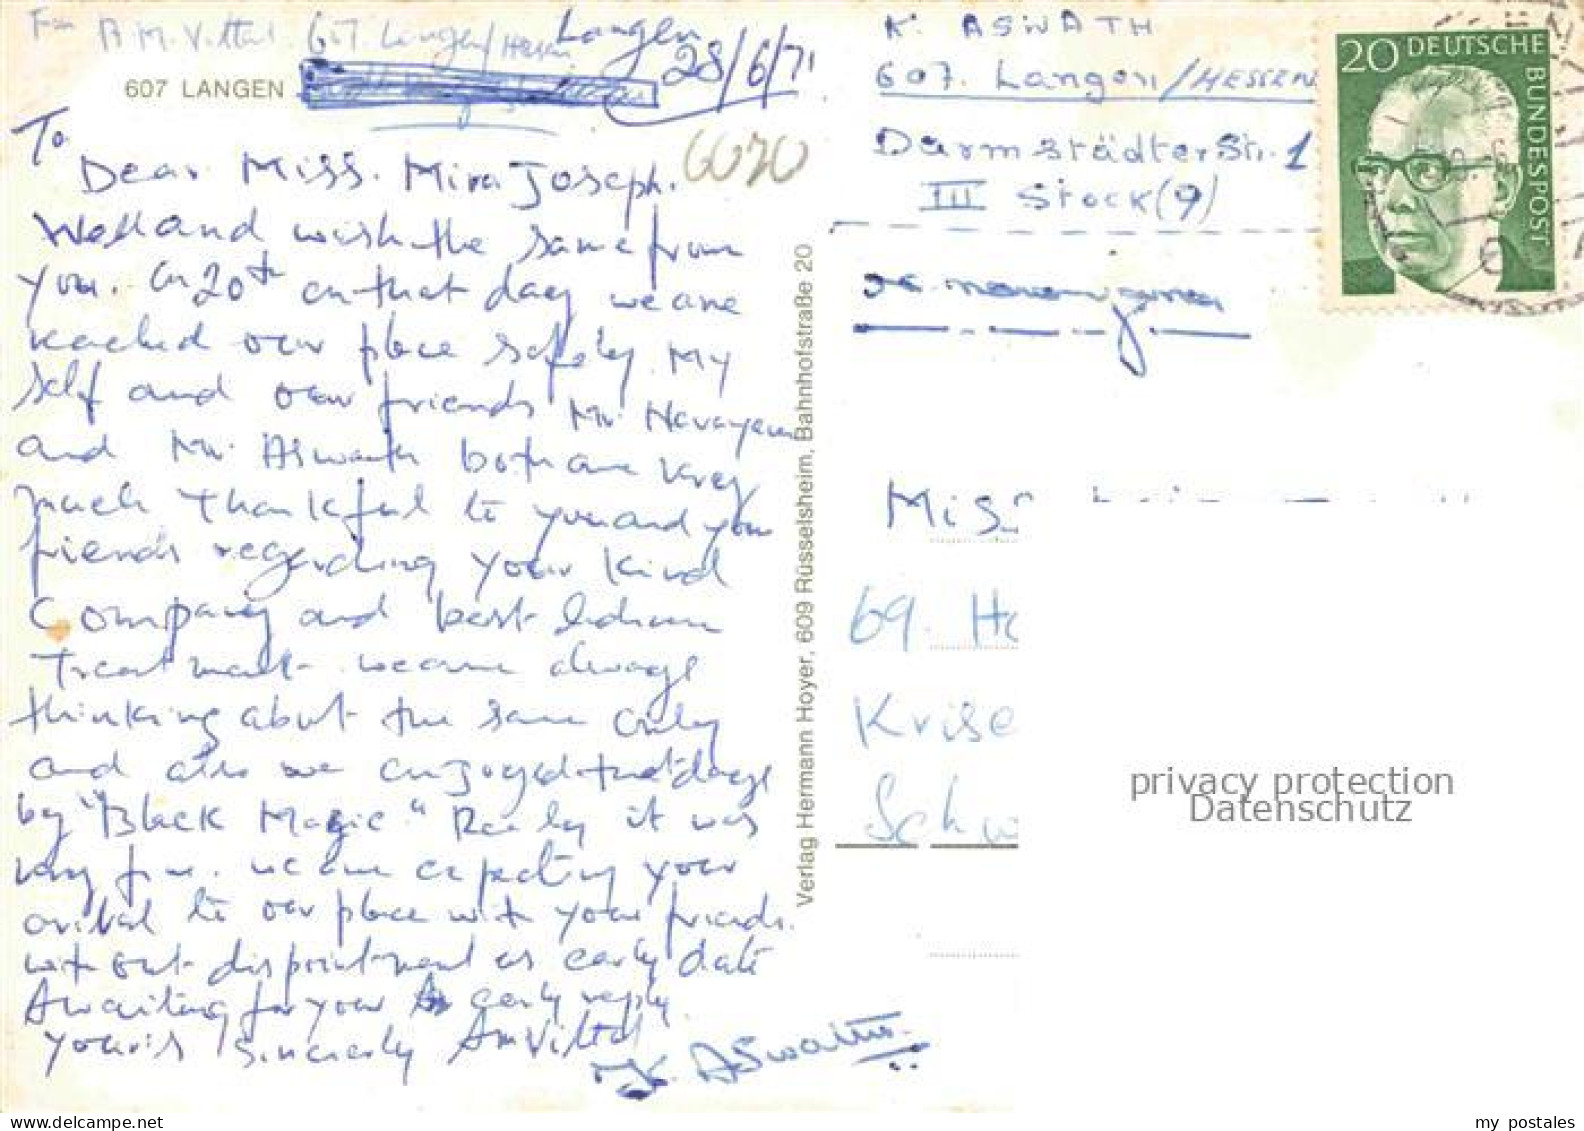 From A M. Vittal. 607. Langen/Hessen
Langen
28/6/71
607 LANGEN
6070
To
Dear Miss. Mira Joseph.
Well and wish the same from
you. On 20th on that day we are
reached our place safely. My
self and our friends Mr. Narayanan
and Mr. Aswath both are very
much Thankful to you and your
friends regarding your Kind
Company and best Indian
Treatment. we are always
thinking about the same only
and also we enjoyed that days
by "Black Magic." Really it was
very fine. we are expecting your
arival to our place with your friends.
without dispointment as early date
Awaiting for your early reply.
Your's Sincerely AmVittal
K. Aswath
Verlag Hermann Hoyer, 609 Rüsselsheim, Bahnhofstraße 20
K. ASWATH
607. Langen/HESSEN
Darmstädter Str. 1
III Stock(9)
20 DEUTSCHE BUNDESPOST
Miss
69. H
Krise
Schw
privacy protection
Datenschutz
my postales